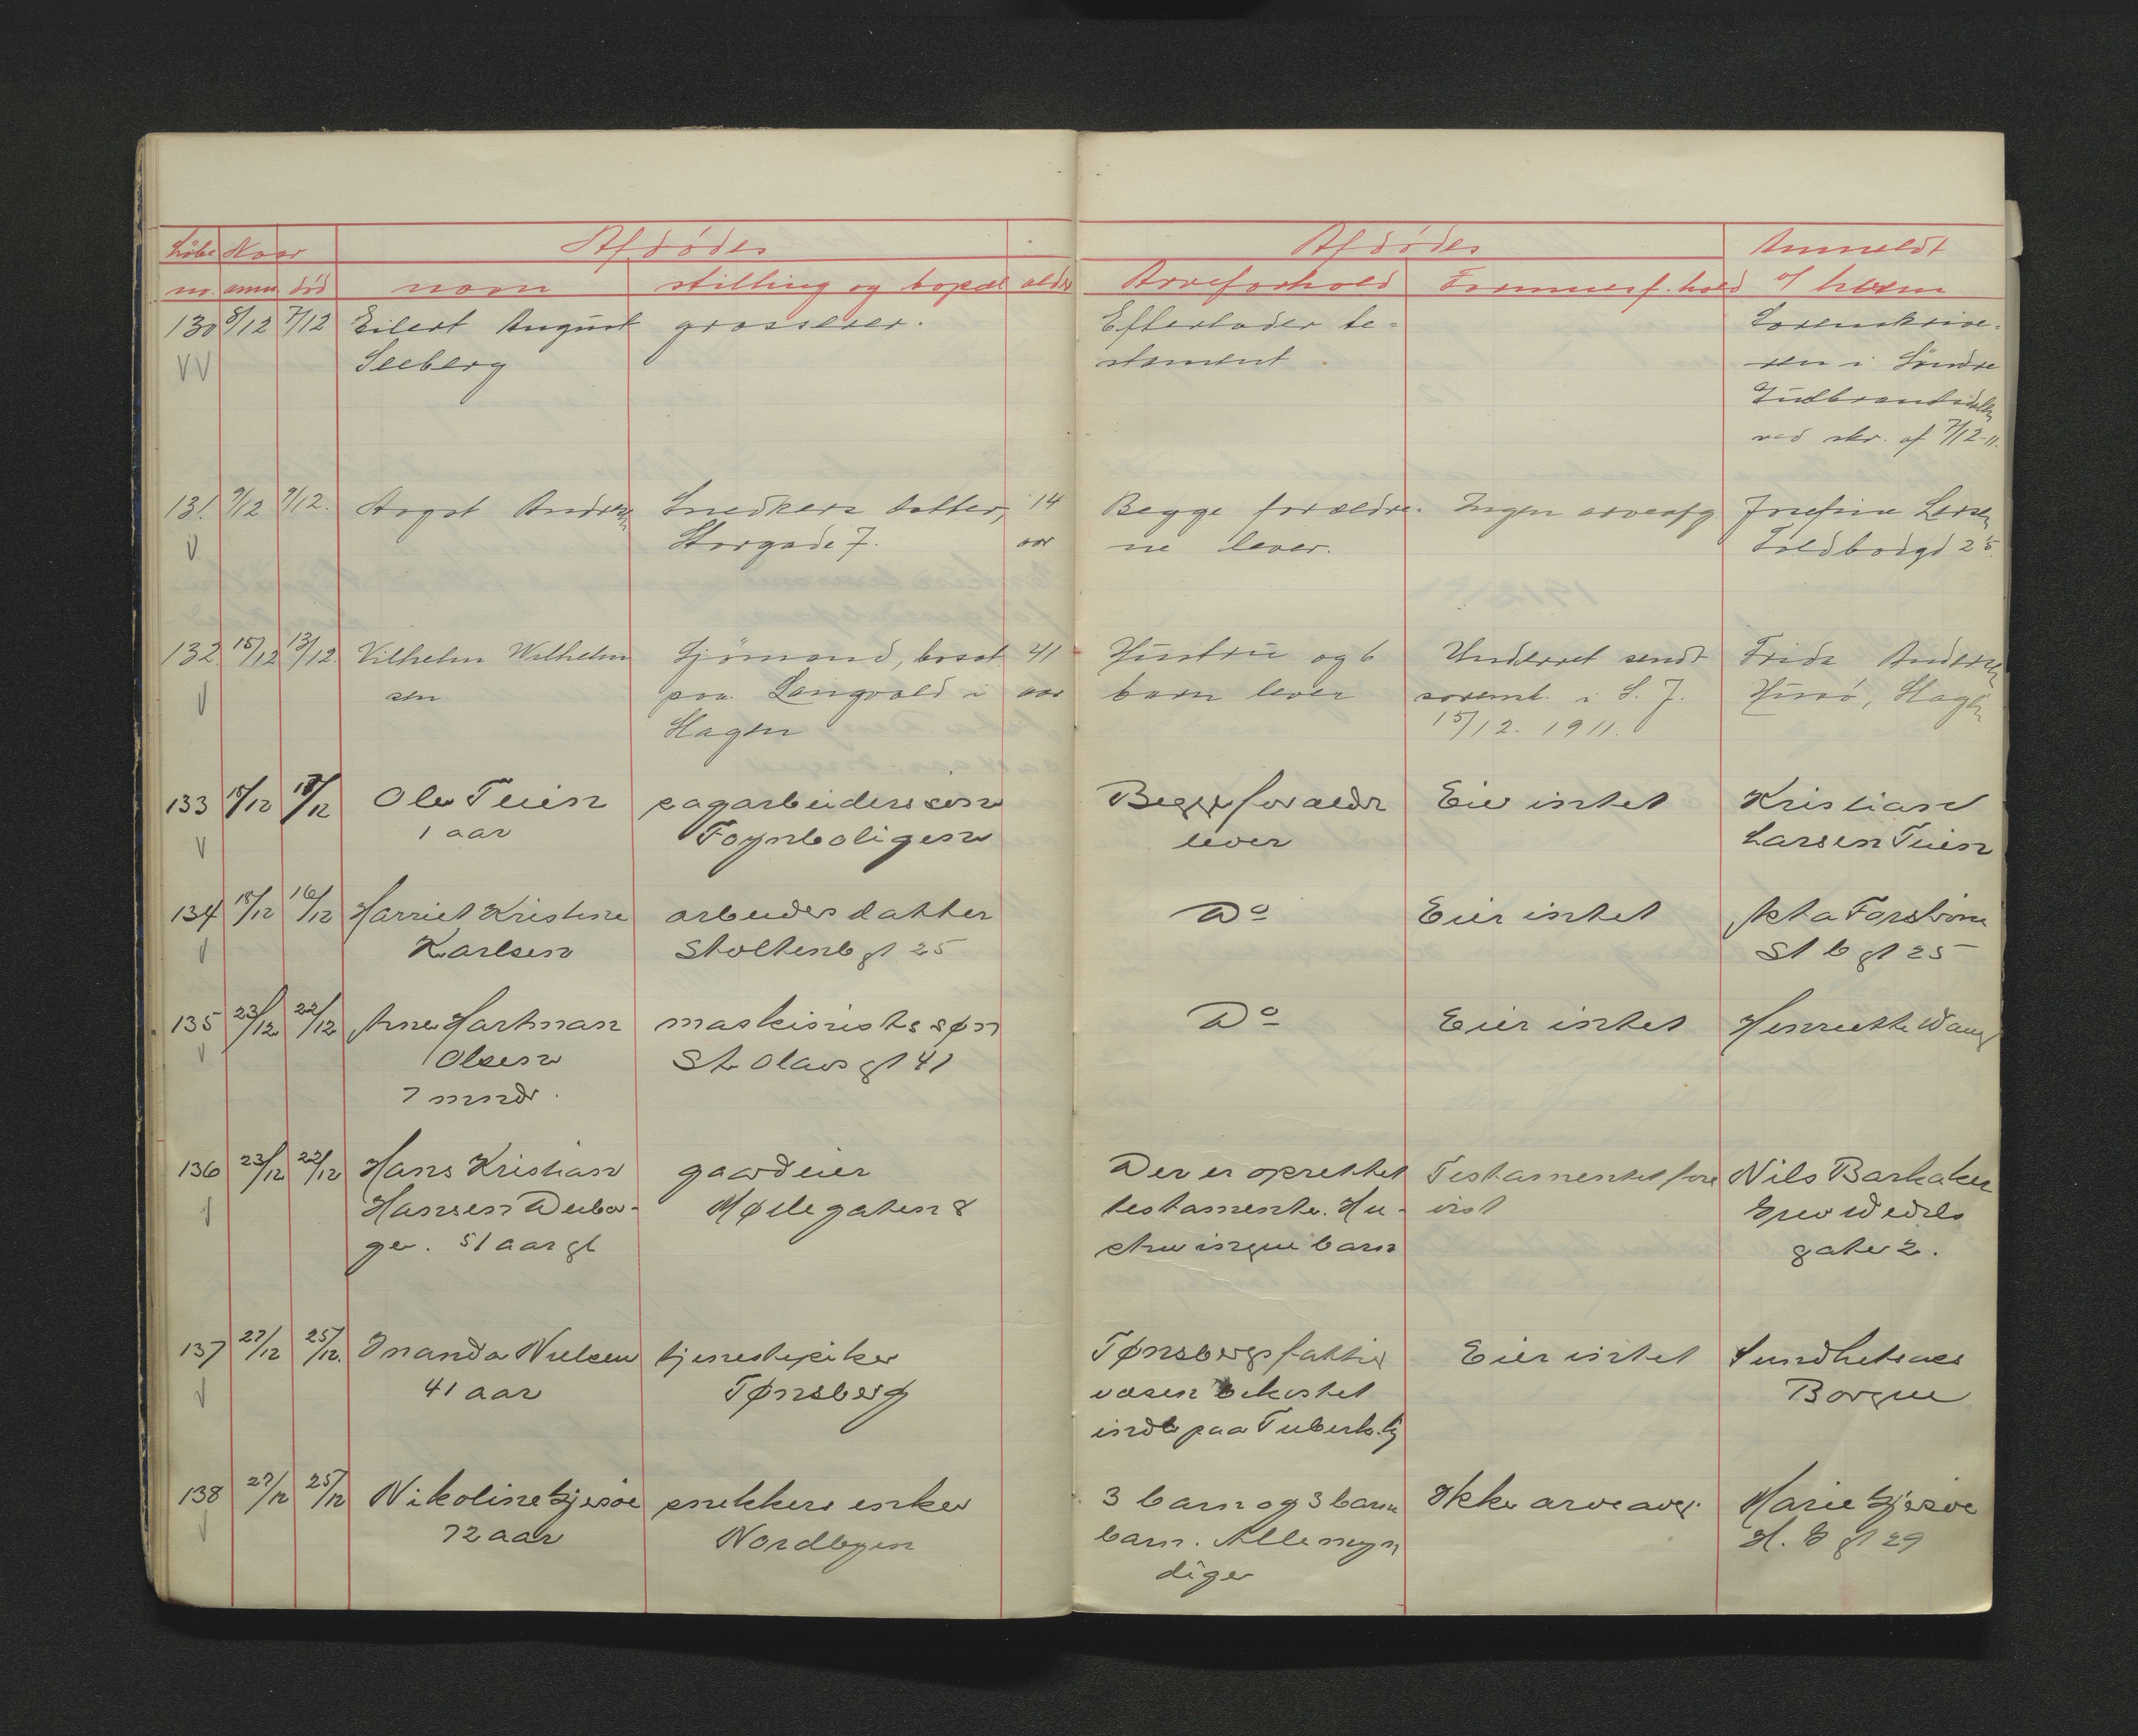 Löbe Naar Afdödes Afdödes Anmeldt
nr. anm. död navn stilling og bopæl alder Arveforhold Formuesf.hold af hvem
130 8/12 7/12 Eilert August grosserer. Efterlader te- Sorenskrive-
Seeberg stament. ren i Söndre
Gudbrandsdalen
ved skr. af 7/12-11.
131. 9/12 9/12. Aagot Andresen Snedkers datter, 14 Begge forældre- Ingen arveafg. Josefine Larsen
Storgade 7. aar ne lever. Toldbodgd 25.
132 15/12 13/12. Vilhelm Wilhelm Sjömand, bosat 41 Hustru og 6 Underret sendt Frida Andersen
sen paa Langvold i aar barn lever sorensk. i S. J. Husö,
Hagen 15/12. 1911.
133 18/12 Ole Teien sagarbeiders søn Begge forældr Eier intet Kristian
1 aar Foynboligen lever Larsen Teien
134 18/12 16/12 Harriet Kristine arbeiders datter Do Eier intet Asta Forstrøm
Karlsen Stoltenb gt 25 St b gt 25
135 23/12 22/12 Arne Hartman maskinists søn Do Eier intet Henriette Wang
Olsen St Olavs gt 41
7 mndr.
136 23/12 22/12 Hans Kristian gaardeier Der er oprettet Testamentet fore Nils Barkaker
Hansen Møllegaten 8 testamente. Hu- vist Grev Wedels
ger. 51 aar gl stru ingen barn gate 2.
137 27/12 25/12. Amanda Nielsen tjenestepike Tønsbergs fattig Eier intet Sundhetsraad
41 aar Tønsberg væsen bekostet Borgen
indl paa Tuberk.hj
138 27/12 25/12 Nikoline Gjersøe snekkers enke 3 barn og 3 barne Ikke arveavg. Marie Gjersøe
72 aar Nordbyen barn. Alle myn H. G gt 29
dige